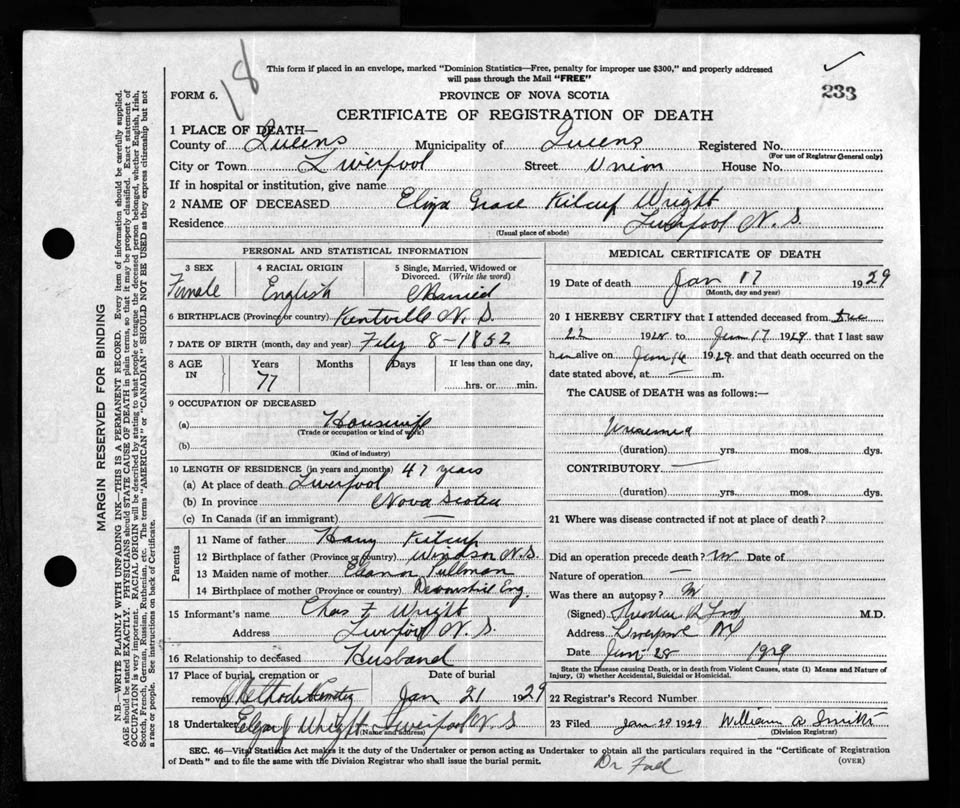 18
This form if placed in an envelope, marked "Dominion Statistics—Free, penalty for improper use $300," and properly addressed
will pass through the Mail "FREE"
233
FORM 6.
PROVINCE OF NOVA SCOTIA
CERTIFICATE OF REGISTRATION OF DEATH
1 PLACE OF DEATH—
County of Queens Municipality of Queens Registered No.
(For use of Registrar General only)
City or Town Liverpool Street Union House No.
If in hospital or institution, give name
2 NAME OF DECEASED Eliza Grace Kilcup Wright
Residence Liverpool N. S.
(Usual place of abode)
MARGIN RESERVED FOR BINDING
N.B.—WRITE PLAINLY WITH UNFADING INK—THIS IS A PERMANENT RECORD. Every item of information should be carefully supplied.
AGE should be stated EXACTLY. PHYSICIANS should STATE CAUSE OF DEATH in plain terms, so that it may be properly classified. Exact statement of
OCCUPATION is very important. RACIAL ORIGIN will be described by stating to what people or tongue the deceased person belonged, whether English, Irish,
Scotch, French, German, Russian, Ruthenian, etc. The terms "AMERICAN" or "CANADIAN" SHOULD NOT BE USED as they express citizenship but not
a race or people. See instructions on back of Certificate.
PERSONAL AND STATISTICAL INFORMATION
3 SEX 4 RACIAL ORIGIN 5 Single, Married, Widowed or
Divorced. (Write the word)
Female English Married
6 BIRTHPLACE (Province or country) Kentville N. S.
7 DATE OF BIRTH (month, day and year) 8-1852
8 AGE IN Years Months Days If less than one day,
77 hrs. or min.
9 OCCUPATION OF DECEASED
(a) Housewife
(Trade or occupation or kind of work)
(b)
(Kind of industry)
10 LENGTH OF RESIDENCE (in years and months) 47 years
(a) At place of death Liverpool
(b) In province Nova Scotia
(c) In Canada (if an immigrant) —
Parents
11 Name of father Harry Kilcup
12 Birthplace of father (Province or country) Windsor N.S.
13 Maiden name of mother Eleanor Pullman
14 Birthplace of mother (Province or country) Devonshire Eng.
15 Informant's name Chas F Wright
Address Liverpool N. S.
16 Relationship to deceased Husband
17 Place of burial, cremation or Date of burial
removal Methodist Cemetery Jan 21 1929
18 Undertaker Wright Liverpool N. S
(Name and address)
MEDICAL CERTIFICATE OF DEATH
19 Date of death Jan 17 1929
(Month, day and year)
20 I HEREBY CERTIFY that I attended deceased from Dec
22 1928 to Jan 17 1929, that I last saw
her alive on Jan 16 1929 and that death occurred on the
date stated above, at — m.
The CAUSE of DEATH was as follows:—
Uraemia
(duration) yrs. mos. dys.
CONTRIBUTORY —
(duration) yrs. mos. dys.
21 Where was disease contracted if not at place of death?
Did an operation precede death? no Date of
Nature of operation —
Was there an autopsy? no
(Signed) M.D.
Address Liverpool NS
Date Jan 28 1929
State the Disease causing Death, or in death from Violent Causes, state (1) Means and Nature of
Injury, (2) whether Accidental, Suicidal or Homicidal.
22 Registrar's Record Number
23 Filed Jan 29 1929 William A Smith
(Division Registrar)
SEC. 46—Vital Statistics Act makes it the duty of the Undertaker or person acting as Undertaker to obtain all the particulars required in the "Certificate of Registration
of Death" and to file the same with the Division Registrar who shall issue the burial permit.
(OVER)
Dr